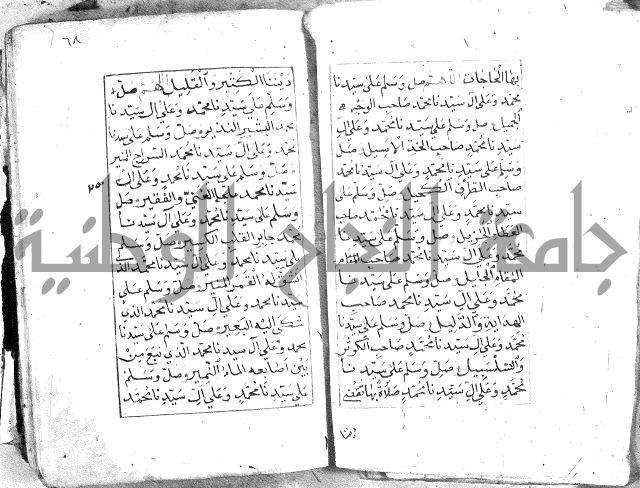 ١
بها الحاجات اللهم صل وسلم على سيدنا
محمد وعلى آل سيدنا محمد صاحب الوجه
الجميل صل وسلم على سيدنا محمد وعلى آل
سيدنا محمد صاحب الخد الاسيل صل
وسلم على سيدنا محمد وعلى آل سيدنا محمد
صاحب الطرف الكحيل صل وسلم على
سيدنا محمد وعلى آل سيدنا محمد صاحب
صل وسلم على سيدنا
محمد وعلى آل سيدنا محمد صاحب
صل وسلم على سيدنا
محمد وعلى آل سيدنا محمد صاحب
الهداية والدليل صل وسلم على سيدنا
محمد وعلى آل سيدنا محمد صاحب الكوثر
والسلسبيل صل وسلم على سيدنا
محمد وعلى آل سيدنا محمد صلاة بها تقضى
ديننا
٦٨
ديننا الكثير والقليل اللهم صل
وسلم على سيدنا محمد وعلى آل سيدنا
محمد البشير النذير صل وسلم على سيدنا
محمد وعلى آل سيدنا محمد السراج المنير
صل وسلم على سيدنا محمد وعلى آل
سيدنا محمد الغني والفقير صل
وسلم على سيدنا محمد وعلى آل سيدنا
محمد جابر القلب الكسير صل وسلم
على سيدنا محمد وعلى آل سيدنا محمد الذي
القمر صل وسلم على
سيدنا محمد وعلى آل سيدنا محمد الذي
شكى اليه البعير صل وسلم على سيدنا
محمد وعلى آل سيدنا محمد الذي نبع من
بين اصابعه الماء النمير صل وسلم
على سيدنا محمد وعلى آل سيدنا محمد
جامعة النجاح الوطنية